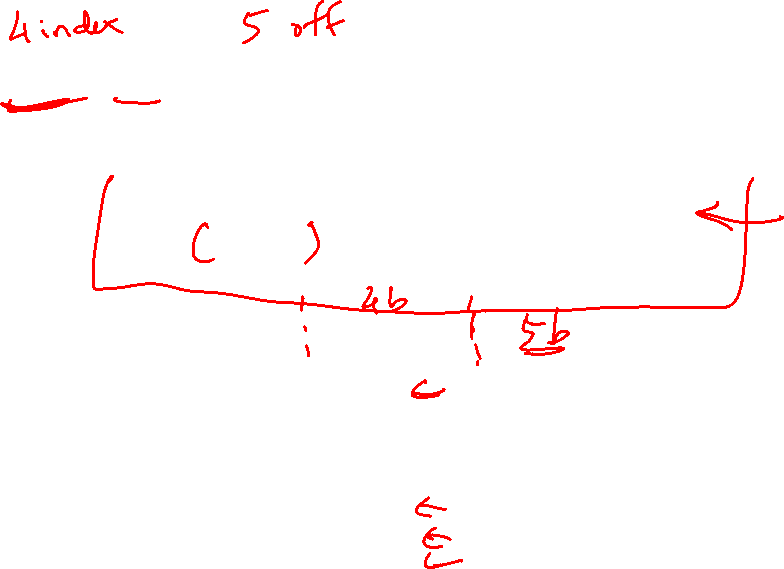 4 index 5 off
( )
4b
5b